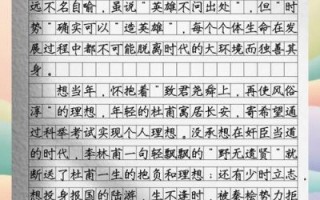 远不名自喻,虽说“英雄不问出处”,但“时
势”确实可以“造英雄”,每个个体生命在发
展过程中都不可能脱离时代的大环境而独善其
身。
想当年,怀抱着“致君尧舜上,再使风俗
淳”的理想,年轻的杜甫寓居长安,寄希望通
过科举考试实现个人理想,没承想在奸臣当道
的时代,李林甫一句轻飘飘的“野无遗贤”就
断送了杜甫一生的抱负和理想;还有少时立志
想投身报国的陆游,生不逢时,被秦桧势力拒